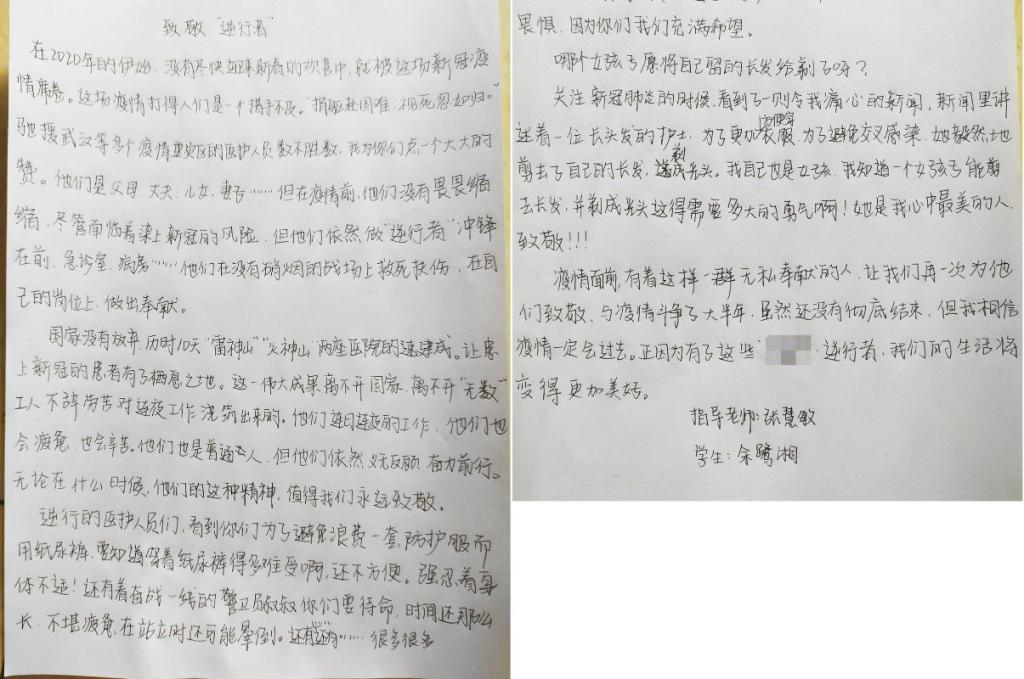 致敬“逆行者”
在2020年的伊始，没有尽快迎来新春的欢喜中，就被这场新冠疫
情席卷。这场疫情打得人们是一个措手不及。“捐躯赴国难，视死忽如归。”
驰援武汉等多个疫情重灾区的医护人员数不胜数，我为你们点一个大大的
赞。他们是父母、丈夫、儿女、妻子……但在疫情前，他们没有畏畏缩
缩，尽管面临着染上新冠的风险，但他们依然做“逆行者”冲锋
在前，急诊室、病房……他们在没有硝烟的战场上救死扶伤，在自
己的岗位上，做出奉献。
国家没有放弃，历时10天“雷神山”“火神山”两座医院的速建成。让患
上新冠的患者有了栖息之地。这一伟大成果离不开国家，离不开“无数”
工人不辞劳苦对连夜工作浇筑出来的。他们连日连夜的工作，他们也
会疲惫，也会辛苦。他们也是普通人，但他们依然义无反顾，奋力前行。
无论在什么时候，他们的这种精神，值得我们永远致敬。
逆行的医护人员们，看到你们为了避免浪费一套防护服而
用纸尿裤，要知道穿着纸尿裤得多难受啊，还不方便。强忍着身
体不适！还有着奋战一线的警卫员叔叔你们要待命，时间还那么
长，不堪疲惫，在站立时还可能晕倒。还有还有……很多很多
畏惧，因为你们我们充满希望。
哪个女孩子愿将自己留的长发给剃了呀？
关注新冠肺炎的时候，看到了一则令我痛心的新闻，新闻里讲
述着一位长头发的护士，为了更加方便穿衣服，为了避免交叉感染，她毅然地
剪去了自己的长发，剃成光头。我自己也是女孩，我知道一个女孩子能剪
去长发，并剃成光头这得需要多大的勇气啊！她是我心中最美的人，
致敬！！！
疫情面前，有着这样一群无私奉献的人，让我们再一次为他
们致敬，与疫情斗争了大半年，虽然还没有彻底结束，但我相信
疫情一定会过去。正因为有了这些逆行者，我们的生活将
变得更加美好。
指导老师：张慧敏
学生：余鹭湘